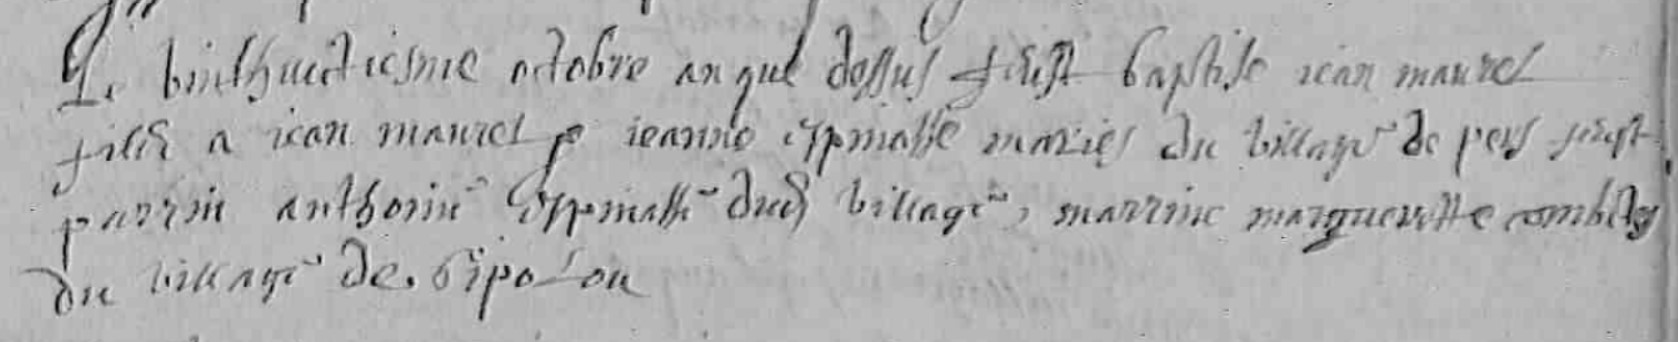 Le vinthuictiesme octobre an que dessus feust baptise iean maurel
filz a iean maurel & ieanne espinasse mariés du village de pers feust
parrin anthoine espinasse dud village, marrine marguerite combes
du village de